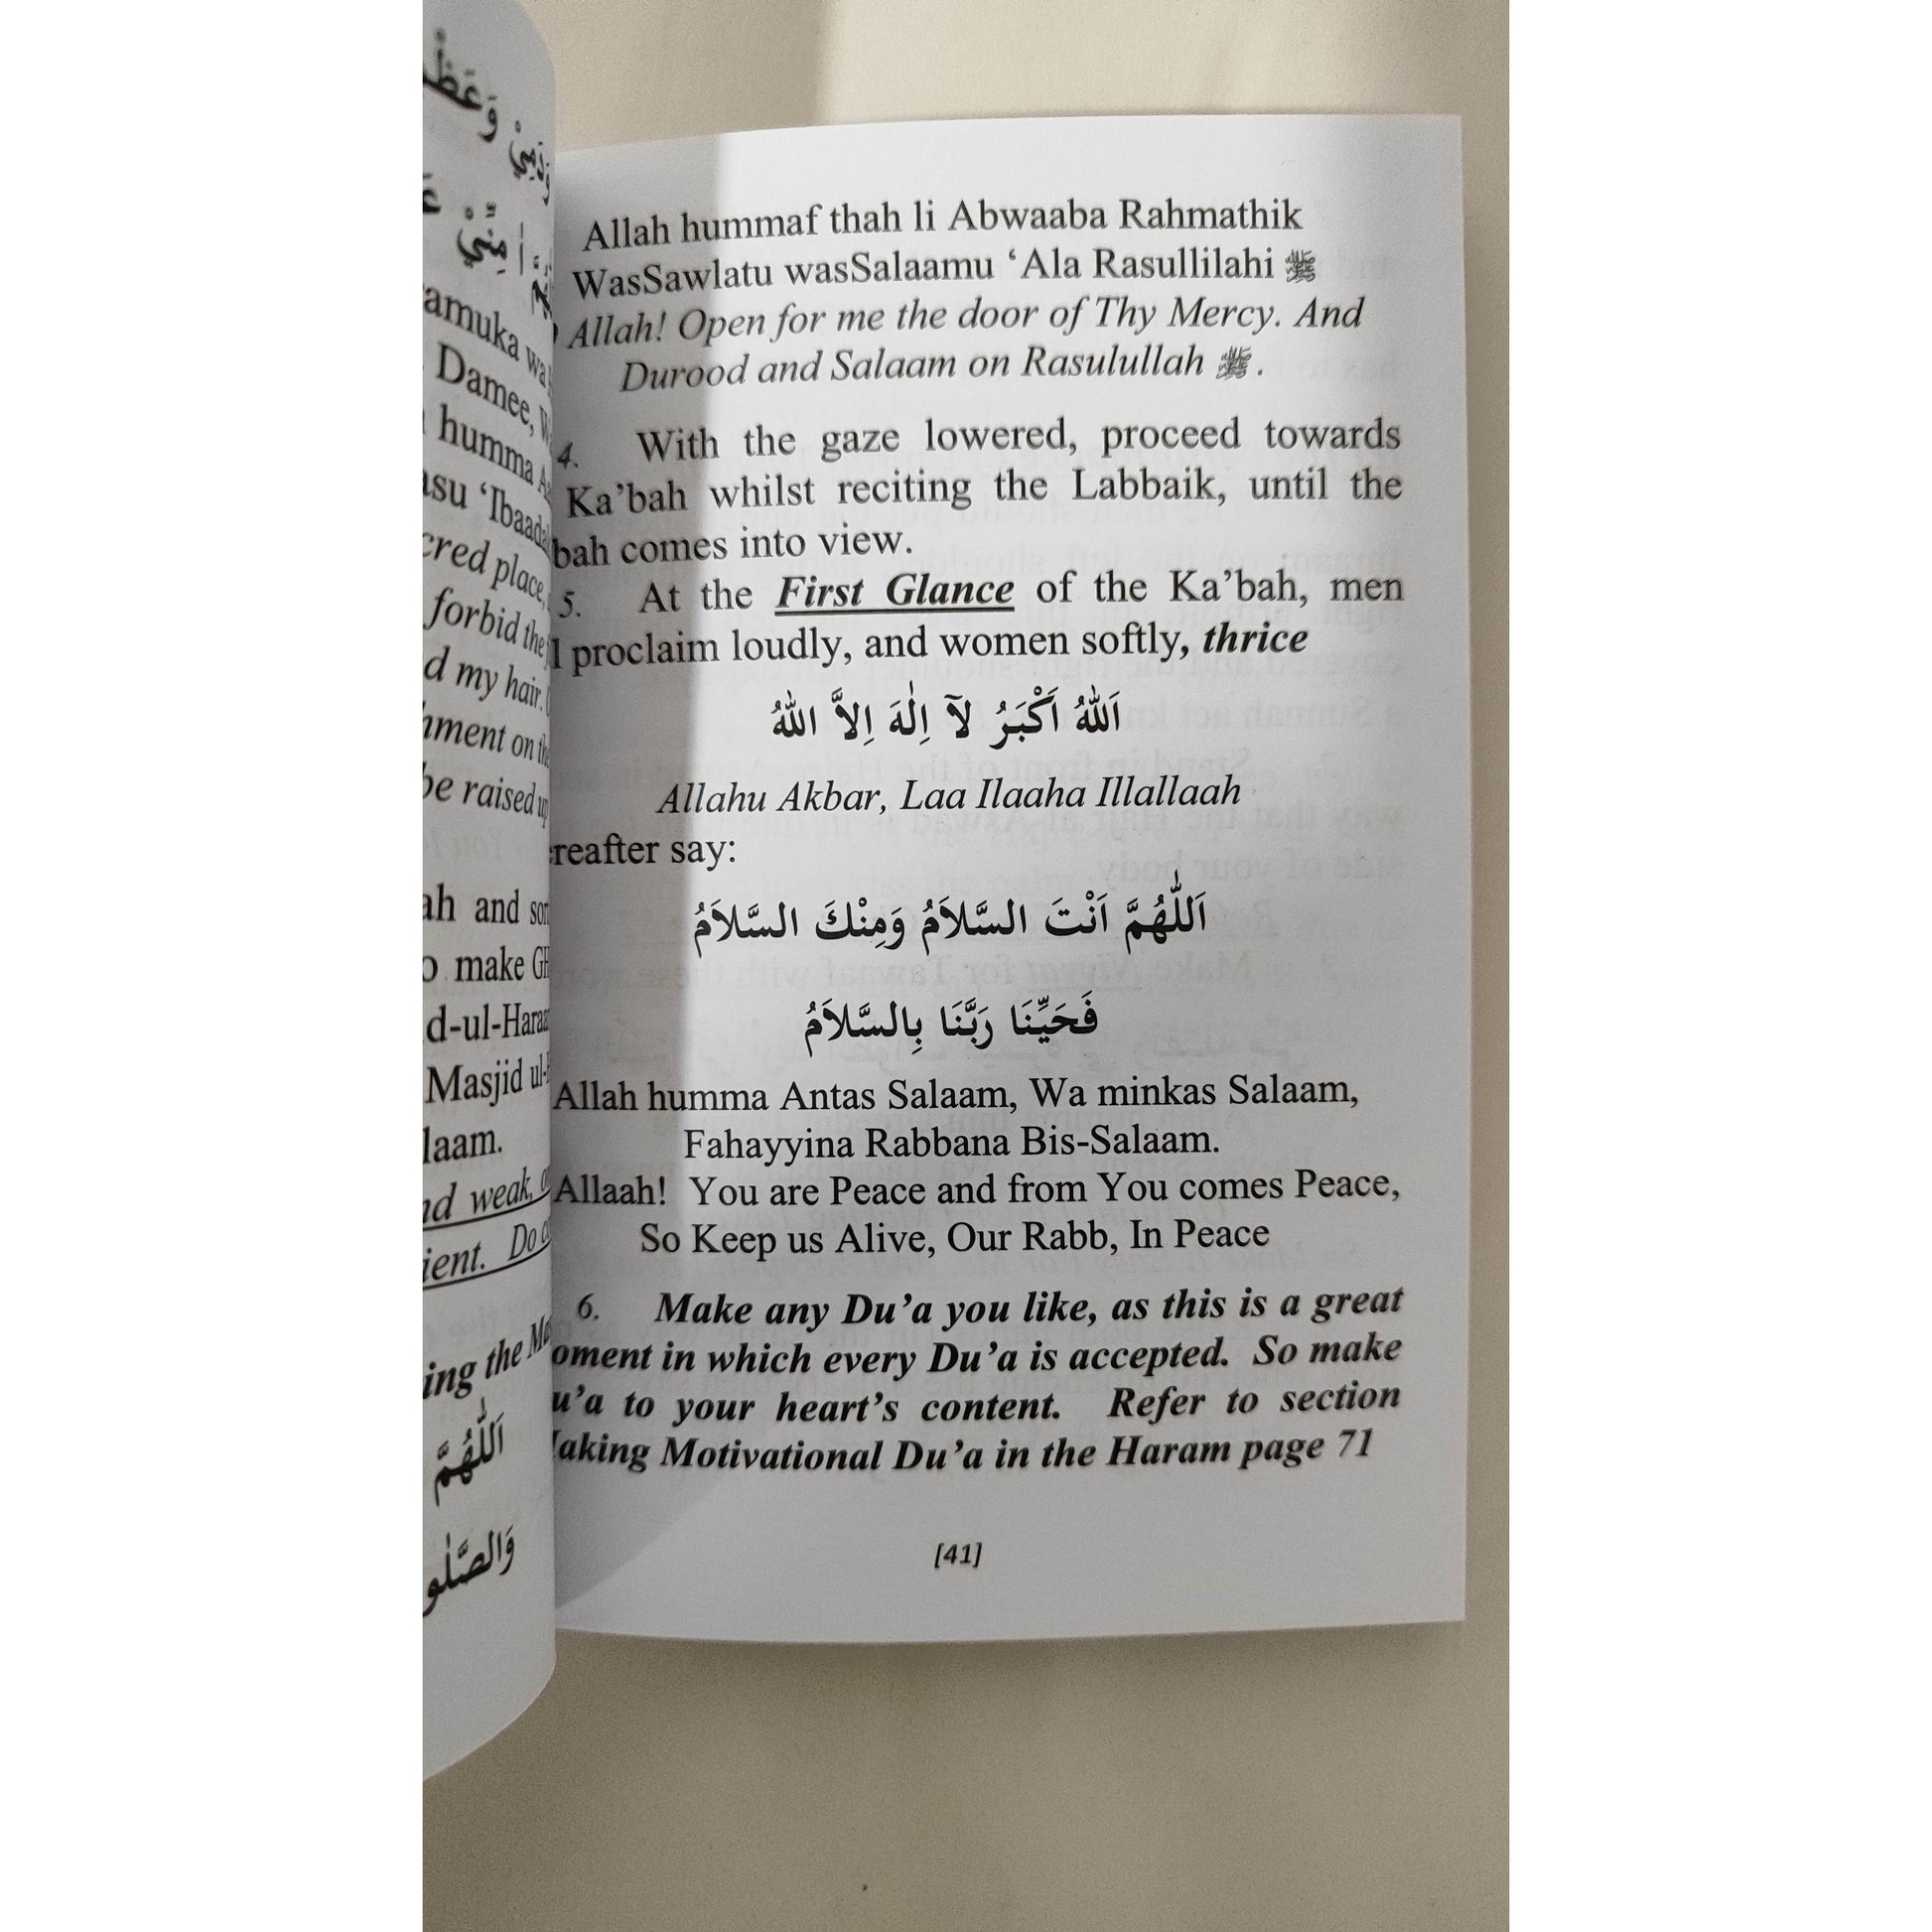 وَعَظْ
وَدَمِيْ
مِنِّيْ
amuka wa
Damee,
humma
asu ‘Ibaada
cred place,
forbid the
d my hair.
hment on the
be raised up
ah and
o make
d-ul-Haraa
Masjid ul-
laam.
nd weak,
ient. Do
ing the
اَللّٰهُمَّ
وَالصَّلٰو
Allah hummaf thah li Abwaaba Rahmathik
WasSawlatu wasSalaamu ‘Ala Rasullilahi ﷺ
Allah! Open for me the door of Thy Mercy. And
Durood and Salaam on Rasulullah ﷺ .
4. With the gaze lowered, proceed towards
Ka’bah whilst reciting the Labbaik, until the
bah comes into view.
5. At the First Glance of the Ka’bah, men
l proclaim loudly, and women softly, thrice
اَللّٰهُ اَكْبَرُ لآ اِلٰهَ اِلاَّ اللّٰهُ
Allahu Akbar, Laa Ilaaha Illallaah
reafter say:
اَللّٰهُمَّ اَنْتَ السَّلاَمُ وَمِنْكَ السَّلاَمُ
فَحَيِّنَا رَبَّنَا بِالسَّلاَمُ
Allah humma Antas Salaam, Wa minkas Salaam,
Fahayyina Rabbana Bis-Salaam.
Allaah! You are Peace and from You comes Peace,
So Keep us Alive, Our Rabb, In Peace
6. Make any Du’a you like, as this is a great
oment in which every Du’a is accepted. So make
u’a to your heart’s content. Refer to section
aking Motivational Du’a in the Haram page 71
[41]